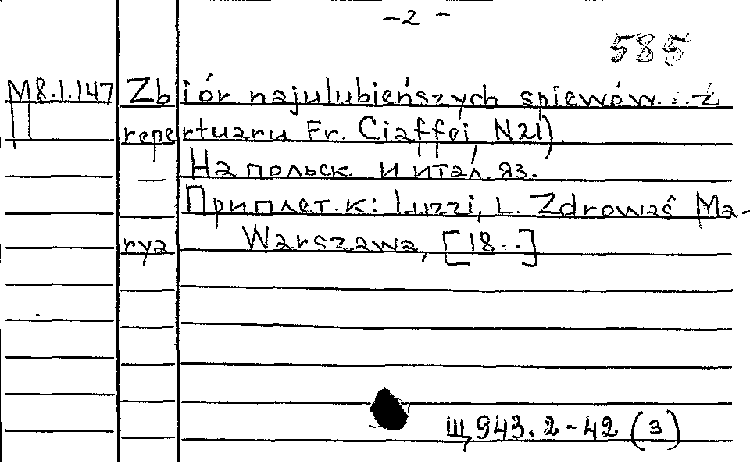 -2-
585
M8.1.147 Zbiór najulubieńszych śpiewów... z
repertuaru Fr. Ciaffei, N21)
На польск. и итал. яз.
Приплет. к: Luzzi, L. Zdrowaś Ma-
rya Warszawa, [18..]
Ш943.2-42 (3)